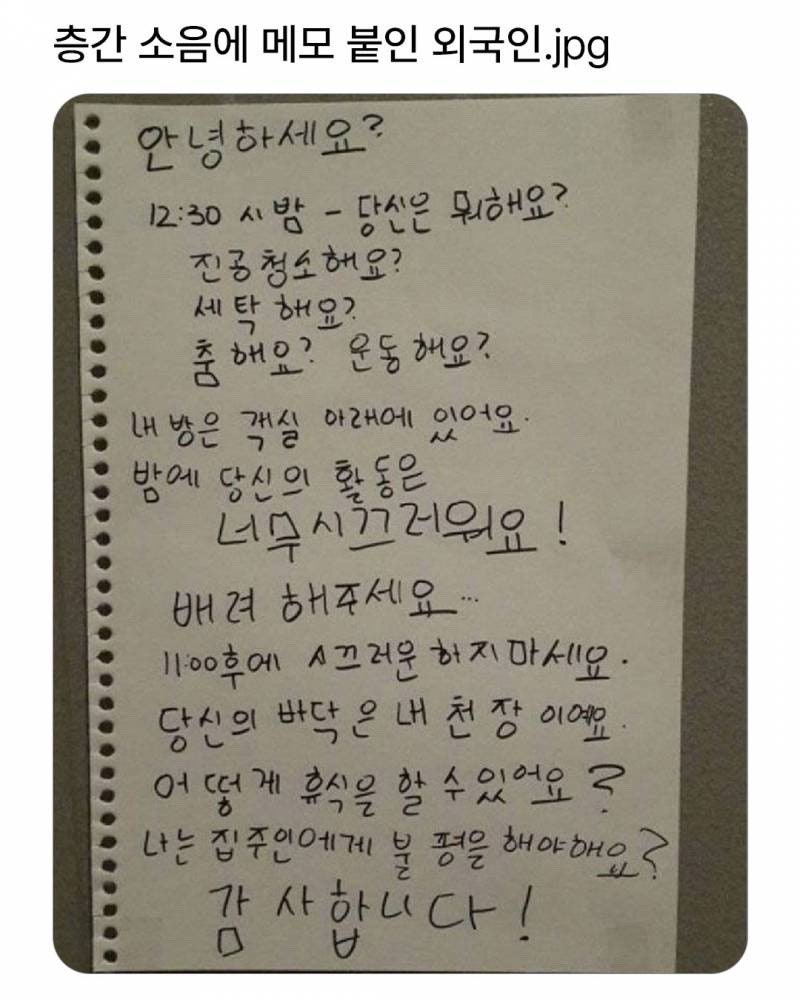 층간 소음에 메모 붙인 외국인.jpg
안녕하세요?
12:30 시 밤 - 당신은 뭐해요?
진공청소해요?
세탁해요?
춤해요? 운동해요?
내 방은 객실 아래에 있어요.
밤에 당신의 활동은
너무시끄러워요!
배려 해주세요...
11:00후에 시끄러운 하지마세요.
당신의 바닥은 내 천장 이예요.
어떻게 휴식을 할 수있어요?
나는 집주인에게 불평을 해야해요?
감사합니다!